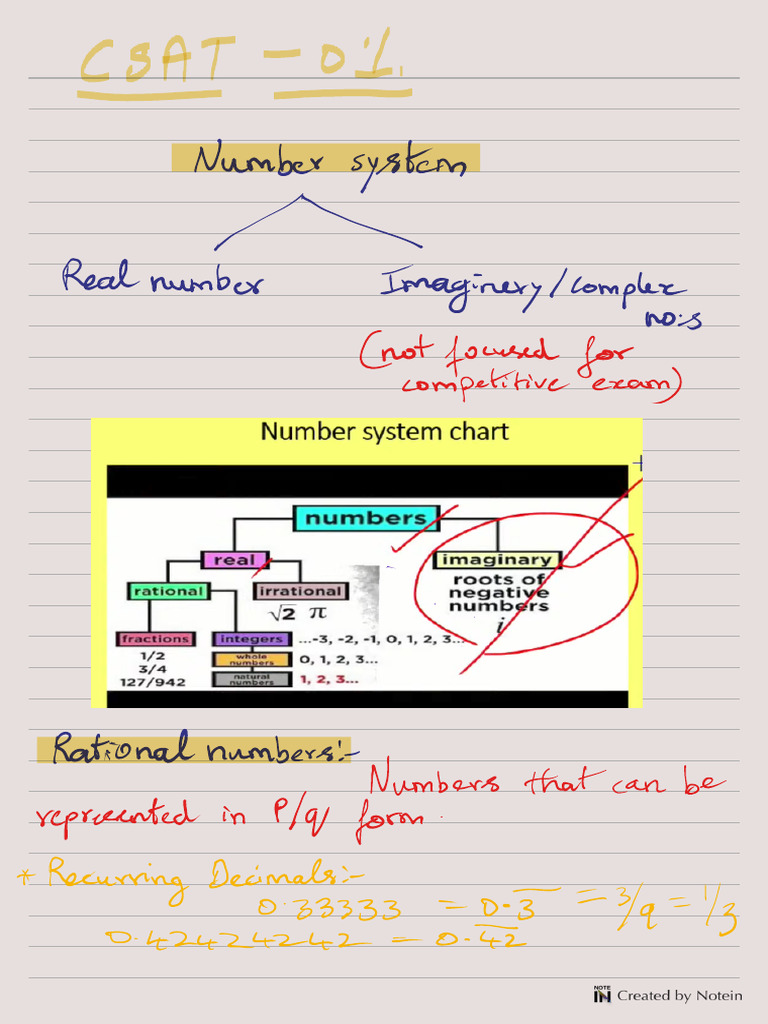 CSAT - 01.
Number system
Real number Imaginery/complex
no:s
(not focused for
competitive exam)
Number system chart
numbers
real imaginary
rational irrational roots of
negative
numbers
√2 π i
fractions integers ...-3, -2, -1, 0, 1, 2, 3...
1/2 whole numbers 0, 1, 2, 3...
3/4 natural numbers 1, 2, 3...
127/942
Rational numbers:-
Numbers that can be
represented in P/q form.
* Recurring Decimals:-
0.33333 = 0.3̅ = 3/9 = 1/3
0.42424242 = 0.4̅2̅
NOTE IN Created by Notein